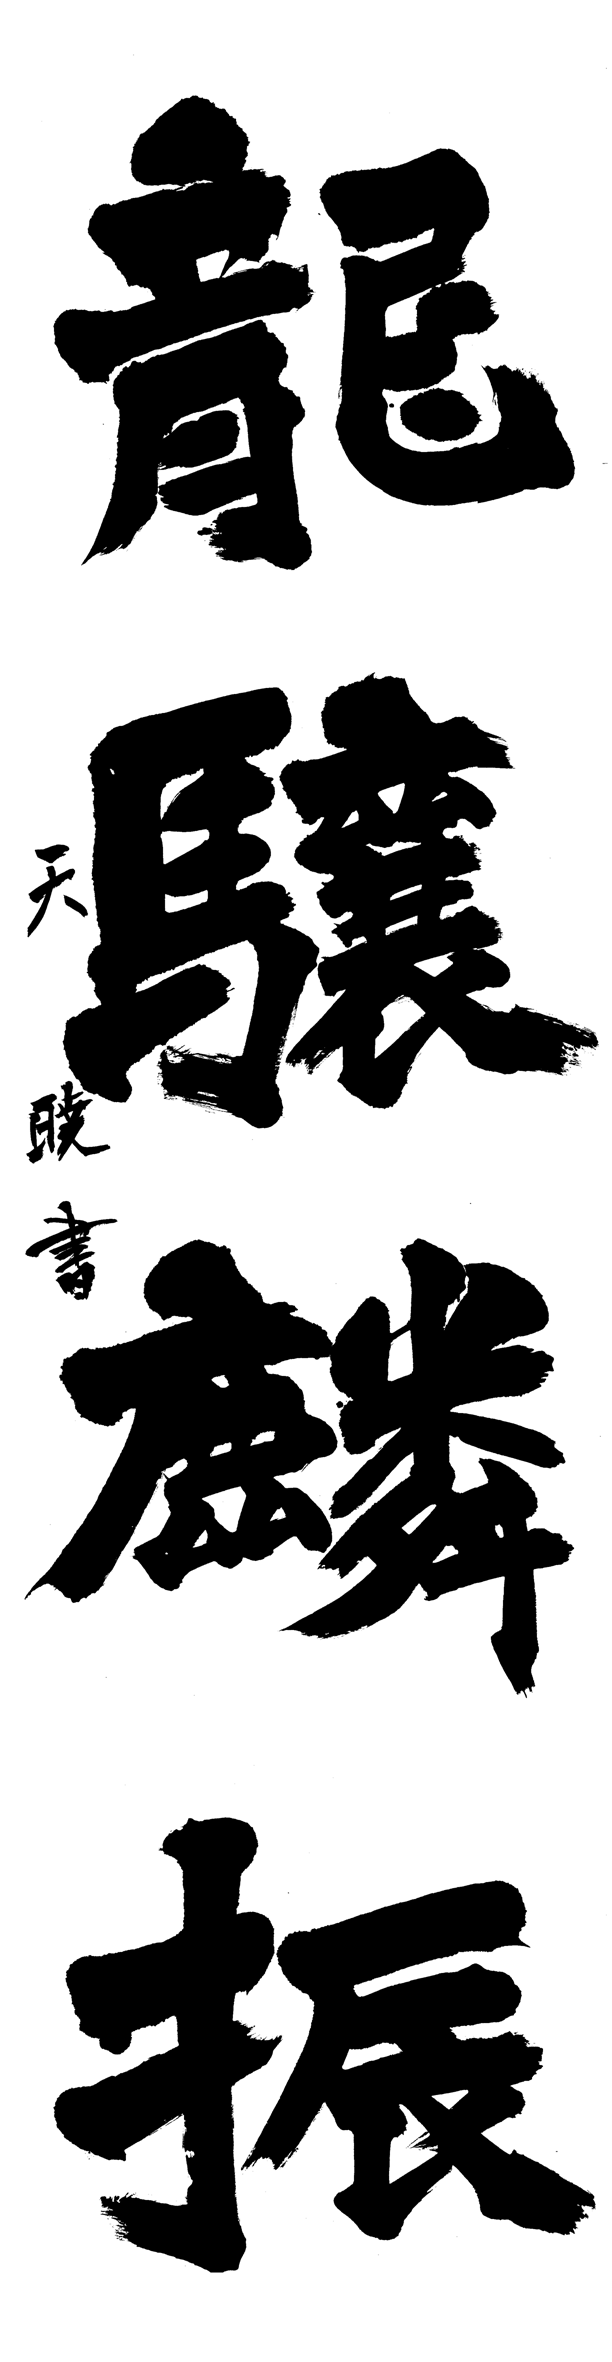 龍驤麟振
天曉書